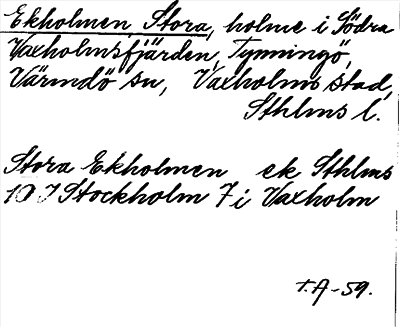 Ekholmen, Stora, holme i Södra
Vaxholmsfjärden, Tynningö,
Värmdö sn, Vaxholms stad,
Sthlms l.
Stora Ekholmen ek Sthlms
10 J Stockholm 7 i Vaxholm
T.A-59.